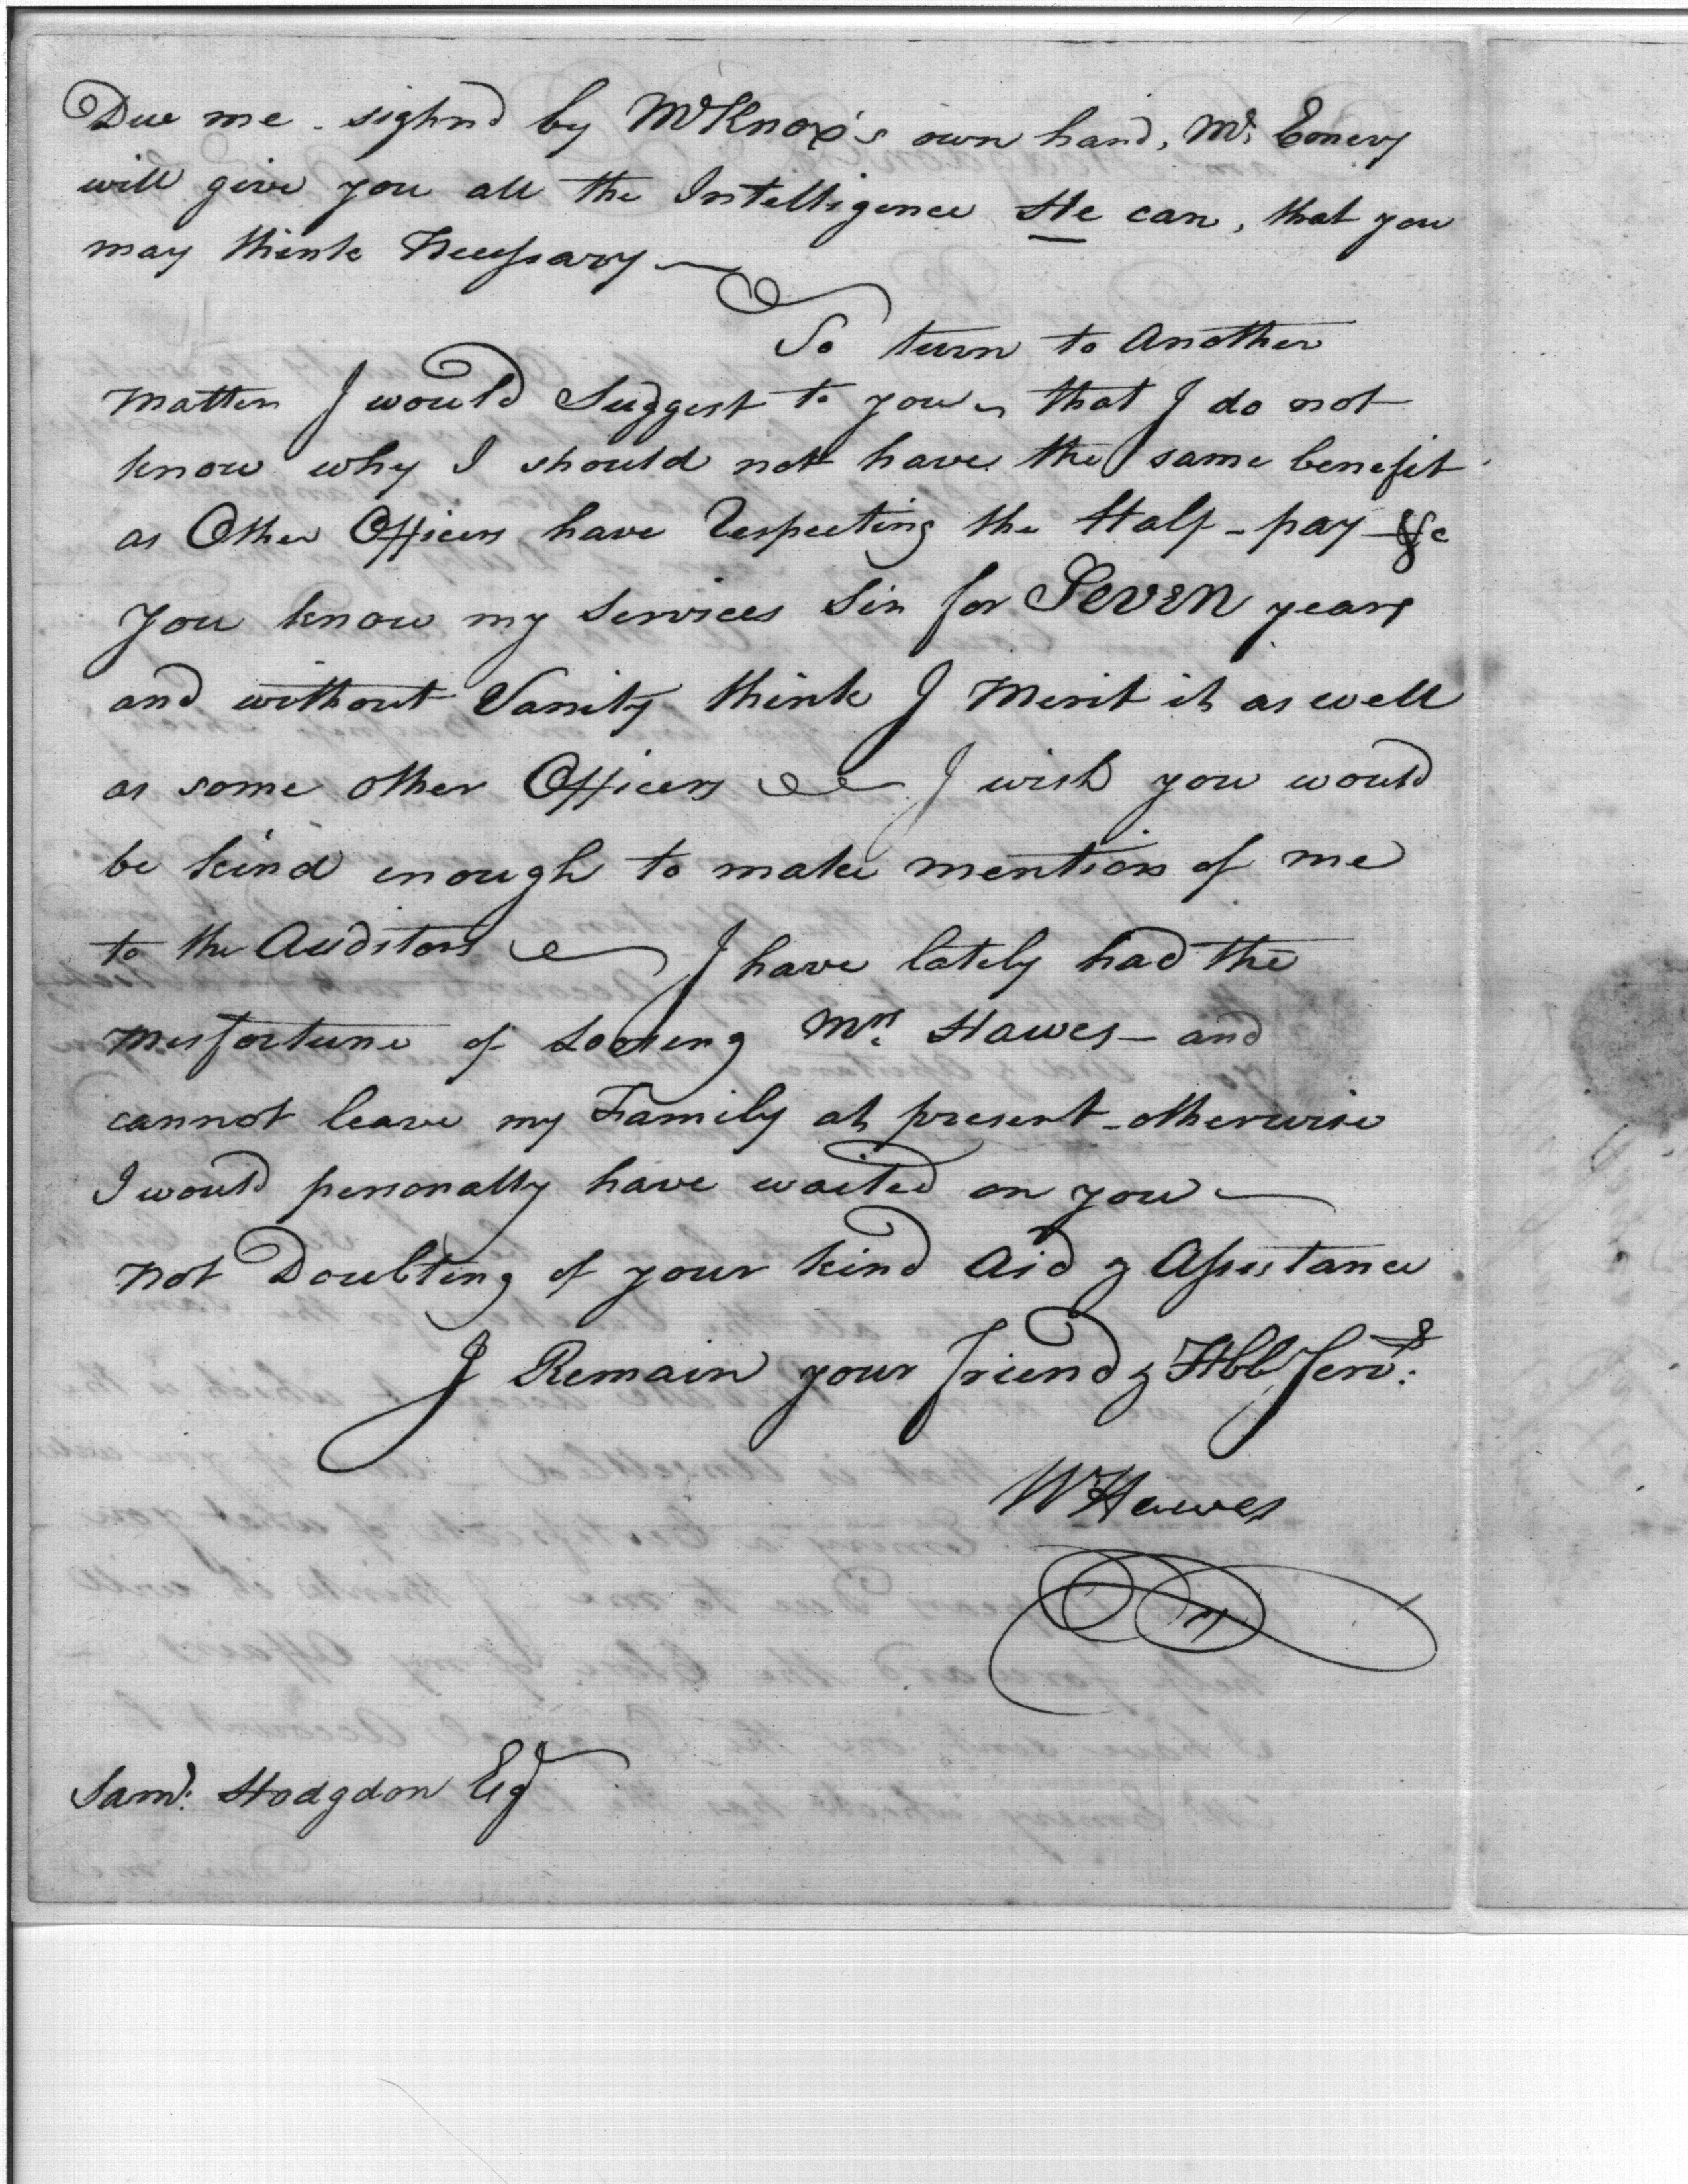 Due me - sighnd by Mr Knox's own hand, Mr. Emery
will give you all the Intelligence He can, that you
may think Necessary —
So turn to Another
matter I would Suggest to you, that I do not
know why I should not have the same benefit
as Other Officers have respecting the Half-pay &c
You know my Services Sir for Seven years
and without Vanity think I Merit it as well
as some other Officers — I wish you would
be kind enough to make mention of me
to the Auditors — I have lately had the
misfortune of Looseing Mrs. Hawes — and
cannot leave my Family at present - otherwise
I would personally have waited on you —
not Doubting of your kind Aid & Assistance
I Remain your friend & Hbl Servt:
W Hawes
Saml: Hodgdon Esq